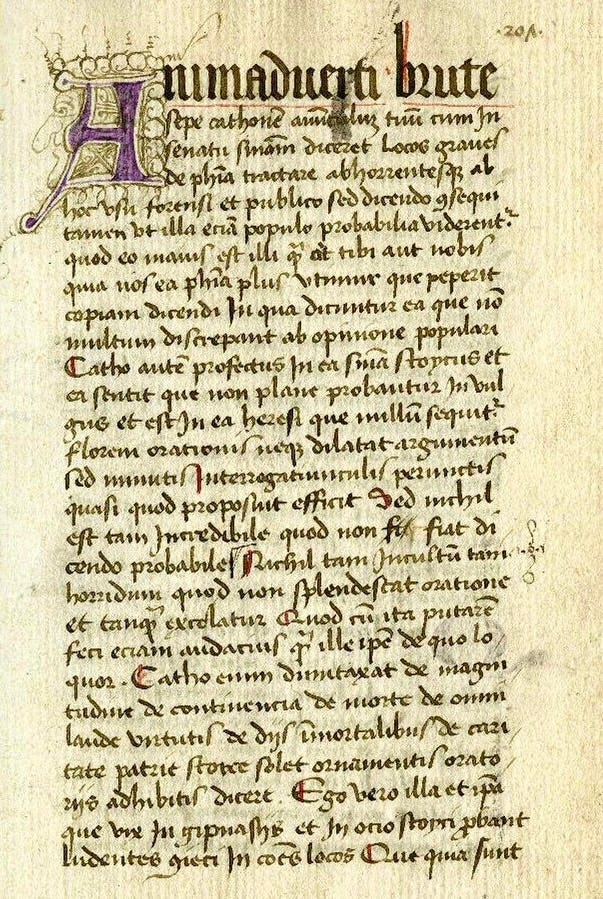 ·201·
Animaduerti brute
sepe cathonē auūculuʒ tuū cum In
senatu sniam̄ diceret locos graues
de phīa tractare abhorrentesqʒ ab
hoc vsu forensi et publico sed dicendo ꝯsequi
tamen vt illa eciā populo probabilia viderent᷑
quod eo maius est illi qͣ̄ aut tibi aut nobis
quia nos ea phīa plus vtimur que peperit
copiam dicendi In qua dicuntur ea que nō
multum discrepant ab opinione populari
Catho autē profectus In ea snīa stoycus et
ea sentit que non plane probantur In vul
gus et est In ea heresi que nullū sequit᷑
florem orationis neqʒ dilatat argumentū
sed minutis Interrogatiunculis perunctis
quasi quod proposuit efficit Sed nichil
est tam Incredibile quod non fit fiat di
cendo probabile Nichil tam Incultū tam
horridum quod non splendescat oratione
et tanqͣ̄ excolatur Quod cū ita putarē
feci eciam audacius qͣ̄ ille ipē de quo lo
quor · Catho enim dumtaxat de magni
tudine de continencia de morte de omni
laude virtutis de diis īmortalibus de cari
tate patrie stoice solet ornamentis orato
riis adhibitis dicere · Ego vero illa et ipā
que vix In gipnasiis et In ocio stoyci ꝓbant
ludentes ꝯieci In coēs locos Que quia sunt